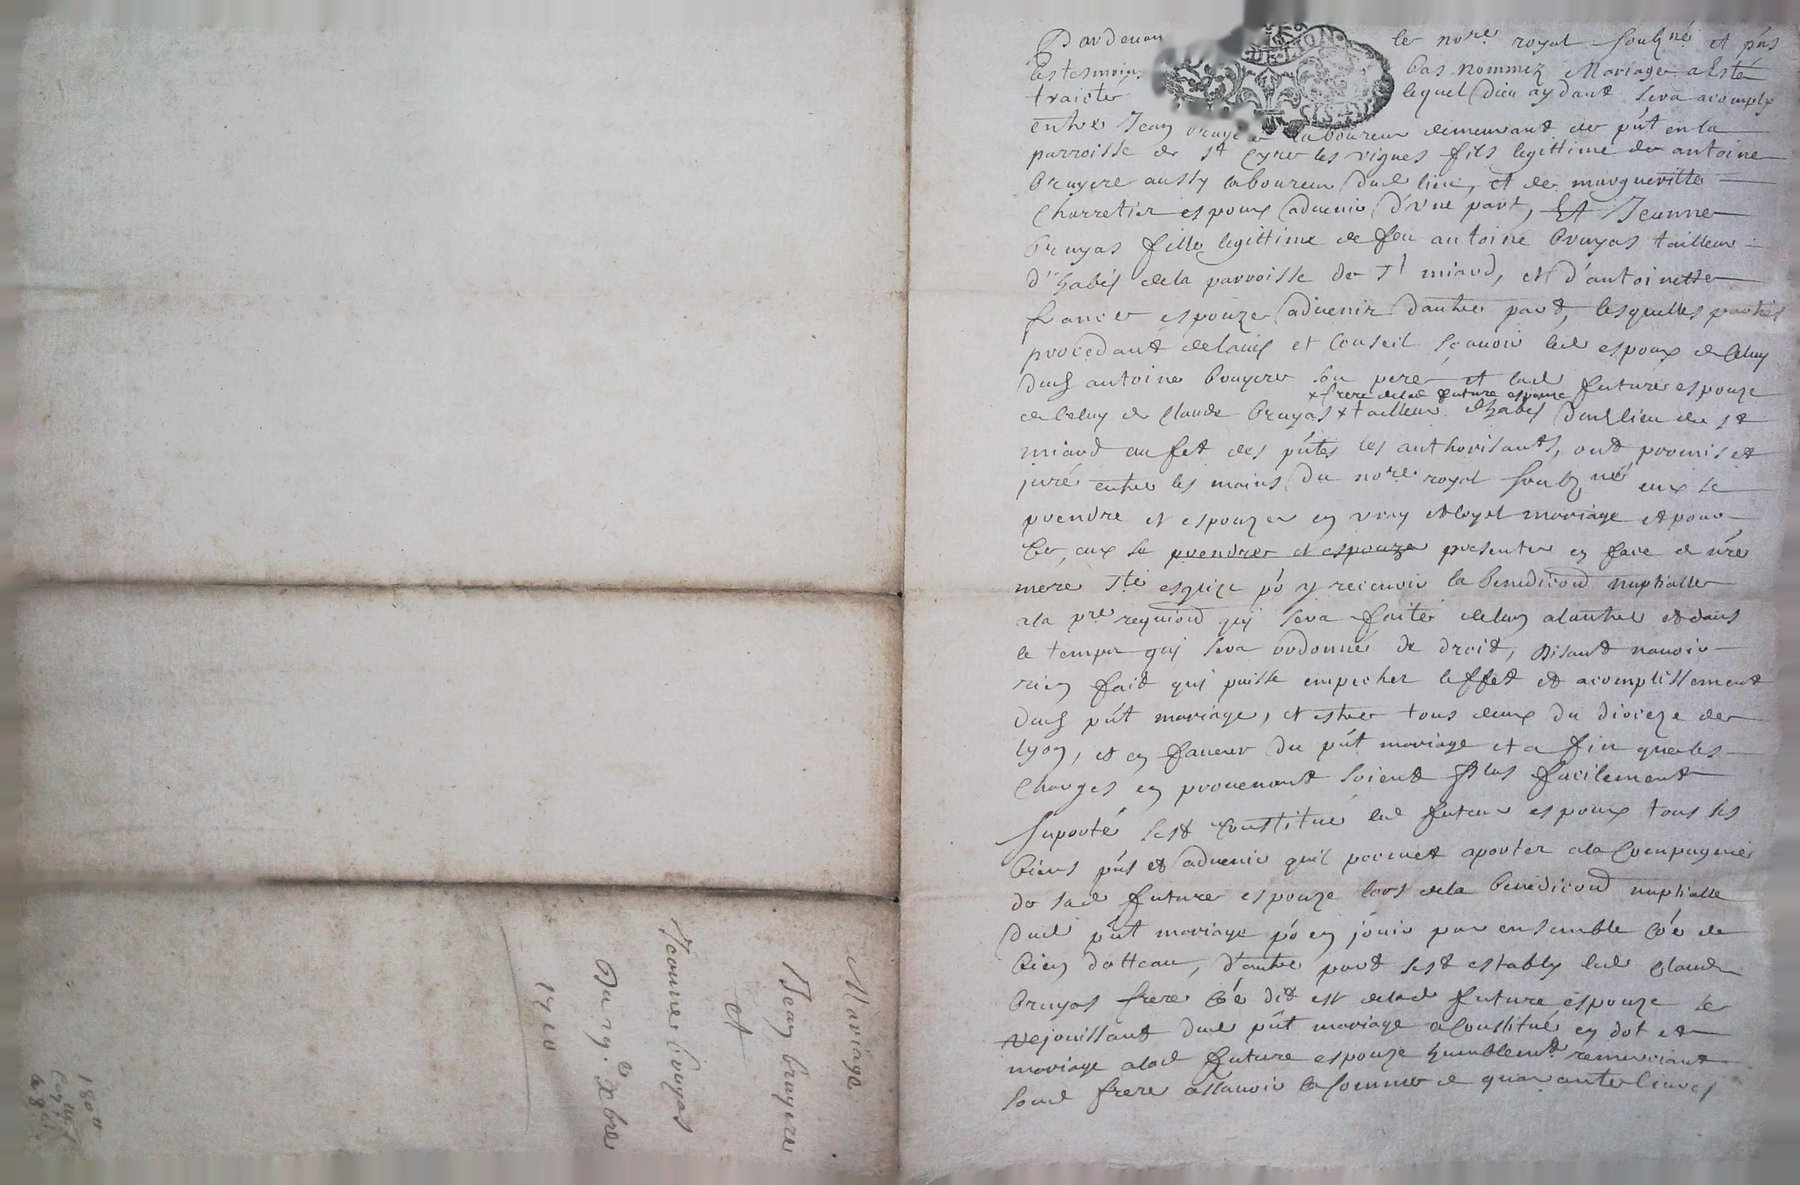 Pardevan le nore royal soubzné et pñs
les tesmoins bas nommez Mariage a esté
traicter lequel Dieu aydant sera acomply
entre Jean bruyere laboureur demeurant de pñt en la
parroisse de st Cyre les vignes fils legittime de antoine
bruyere aussy laboureur dud lieu, et de margueritte
Charretier espoux advenir d'vne part, Et Jeanne
bruyas fille legittime de feu antoine bruyas tailleur
d'habis de la parroisse de St miard, et d'antoinette
france espouze advenir dautre part, lesquelles parties
procedant de lauis et Conseil sçauoir led espoux de Celuy
dud antoine bruyere son pere et lad future espouze
x frere de lad future espouze
de Celuy de Claude bruyas x tailleur dhabis dud lieu de st
miard au fet des pñtes les authorisants, ont promis et
juré entre les mains du nore royal soubzné eux se
prendre et espouzer en vray et loyal mariage et pour
Ce, eux se prendre et espouze presenter en face de nre
mere Ste esglize po y receuoir la benediciond nuptialle
a la pre requiond quy sera faite de lun a lautre et dans
le temps quy sera ordonné de droit, disant nauoir
rien fait qui puisse empecher leffet et acomplissement
dud pñt mariage, et estre tous deux du dioceze de
lyon, et en faueur du pñt mariage et a fin que les
Charges en prouenant soient plus facilement
suporté sest Constitué led futeur espoux tous ses
biens pñs et advenir quil promet aporter a la Compagnie
de sad future espouze lors de la benediciond nuptialle
dud pñt mariage po en jouir par ensemble Côe de
bien dotteau, d'autre part sest estably led Claude
bruyas frere Côe dit est de lad future espouze le
rejouissant dud pñt mariage a Constitué en dot et
mariage a lad future espouze humblemt remerciant
soud frere assauoir la somme de quarante liures
Mariage
Jean bruyere
et
Jeanne bruyas
Du 29e xbre
1710
180tt